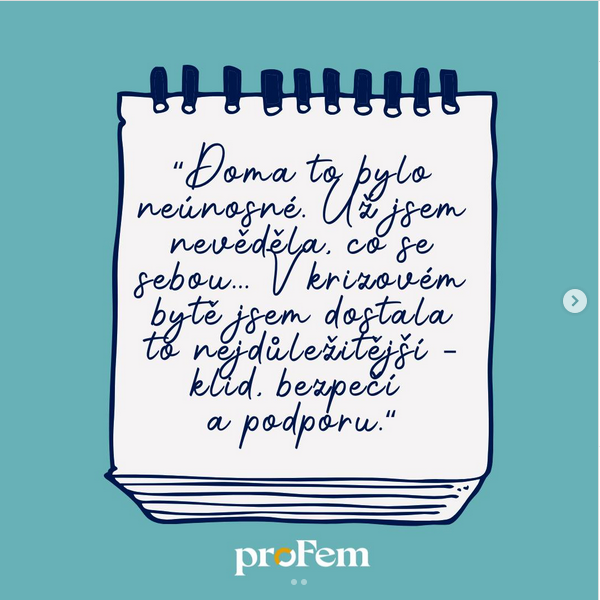 “Doma to bylo
neúnosné. Už jsem
nevěděla, co se
sebou... V krizovém
bytě jsem dostala
to nejdůležitější –
klid, bezpečí
a podporu.“
proFem